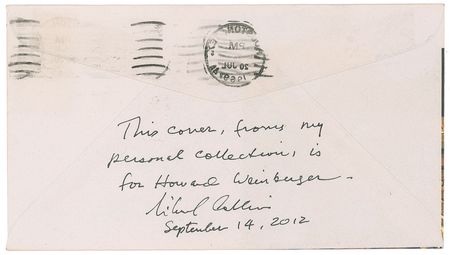 30 JUL
This cover, from my
personal collection, is
for Howard Weinberger -
Michael Collins
September 14, 2012